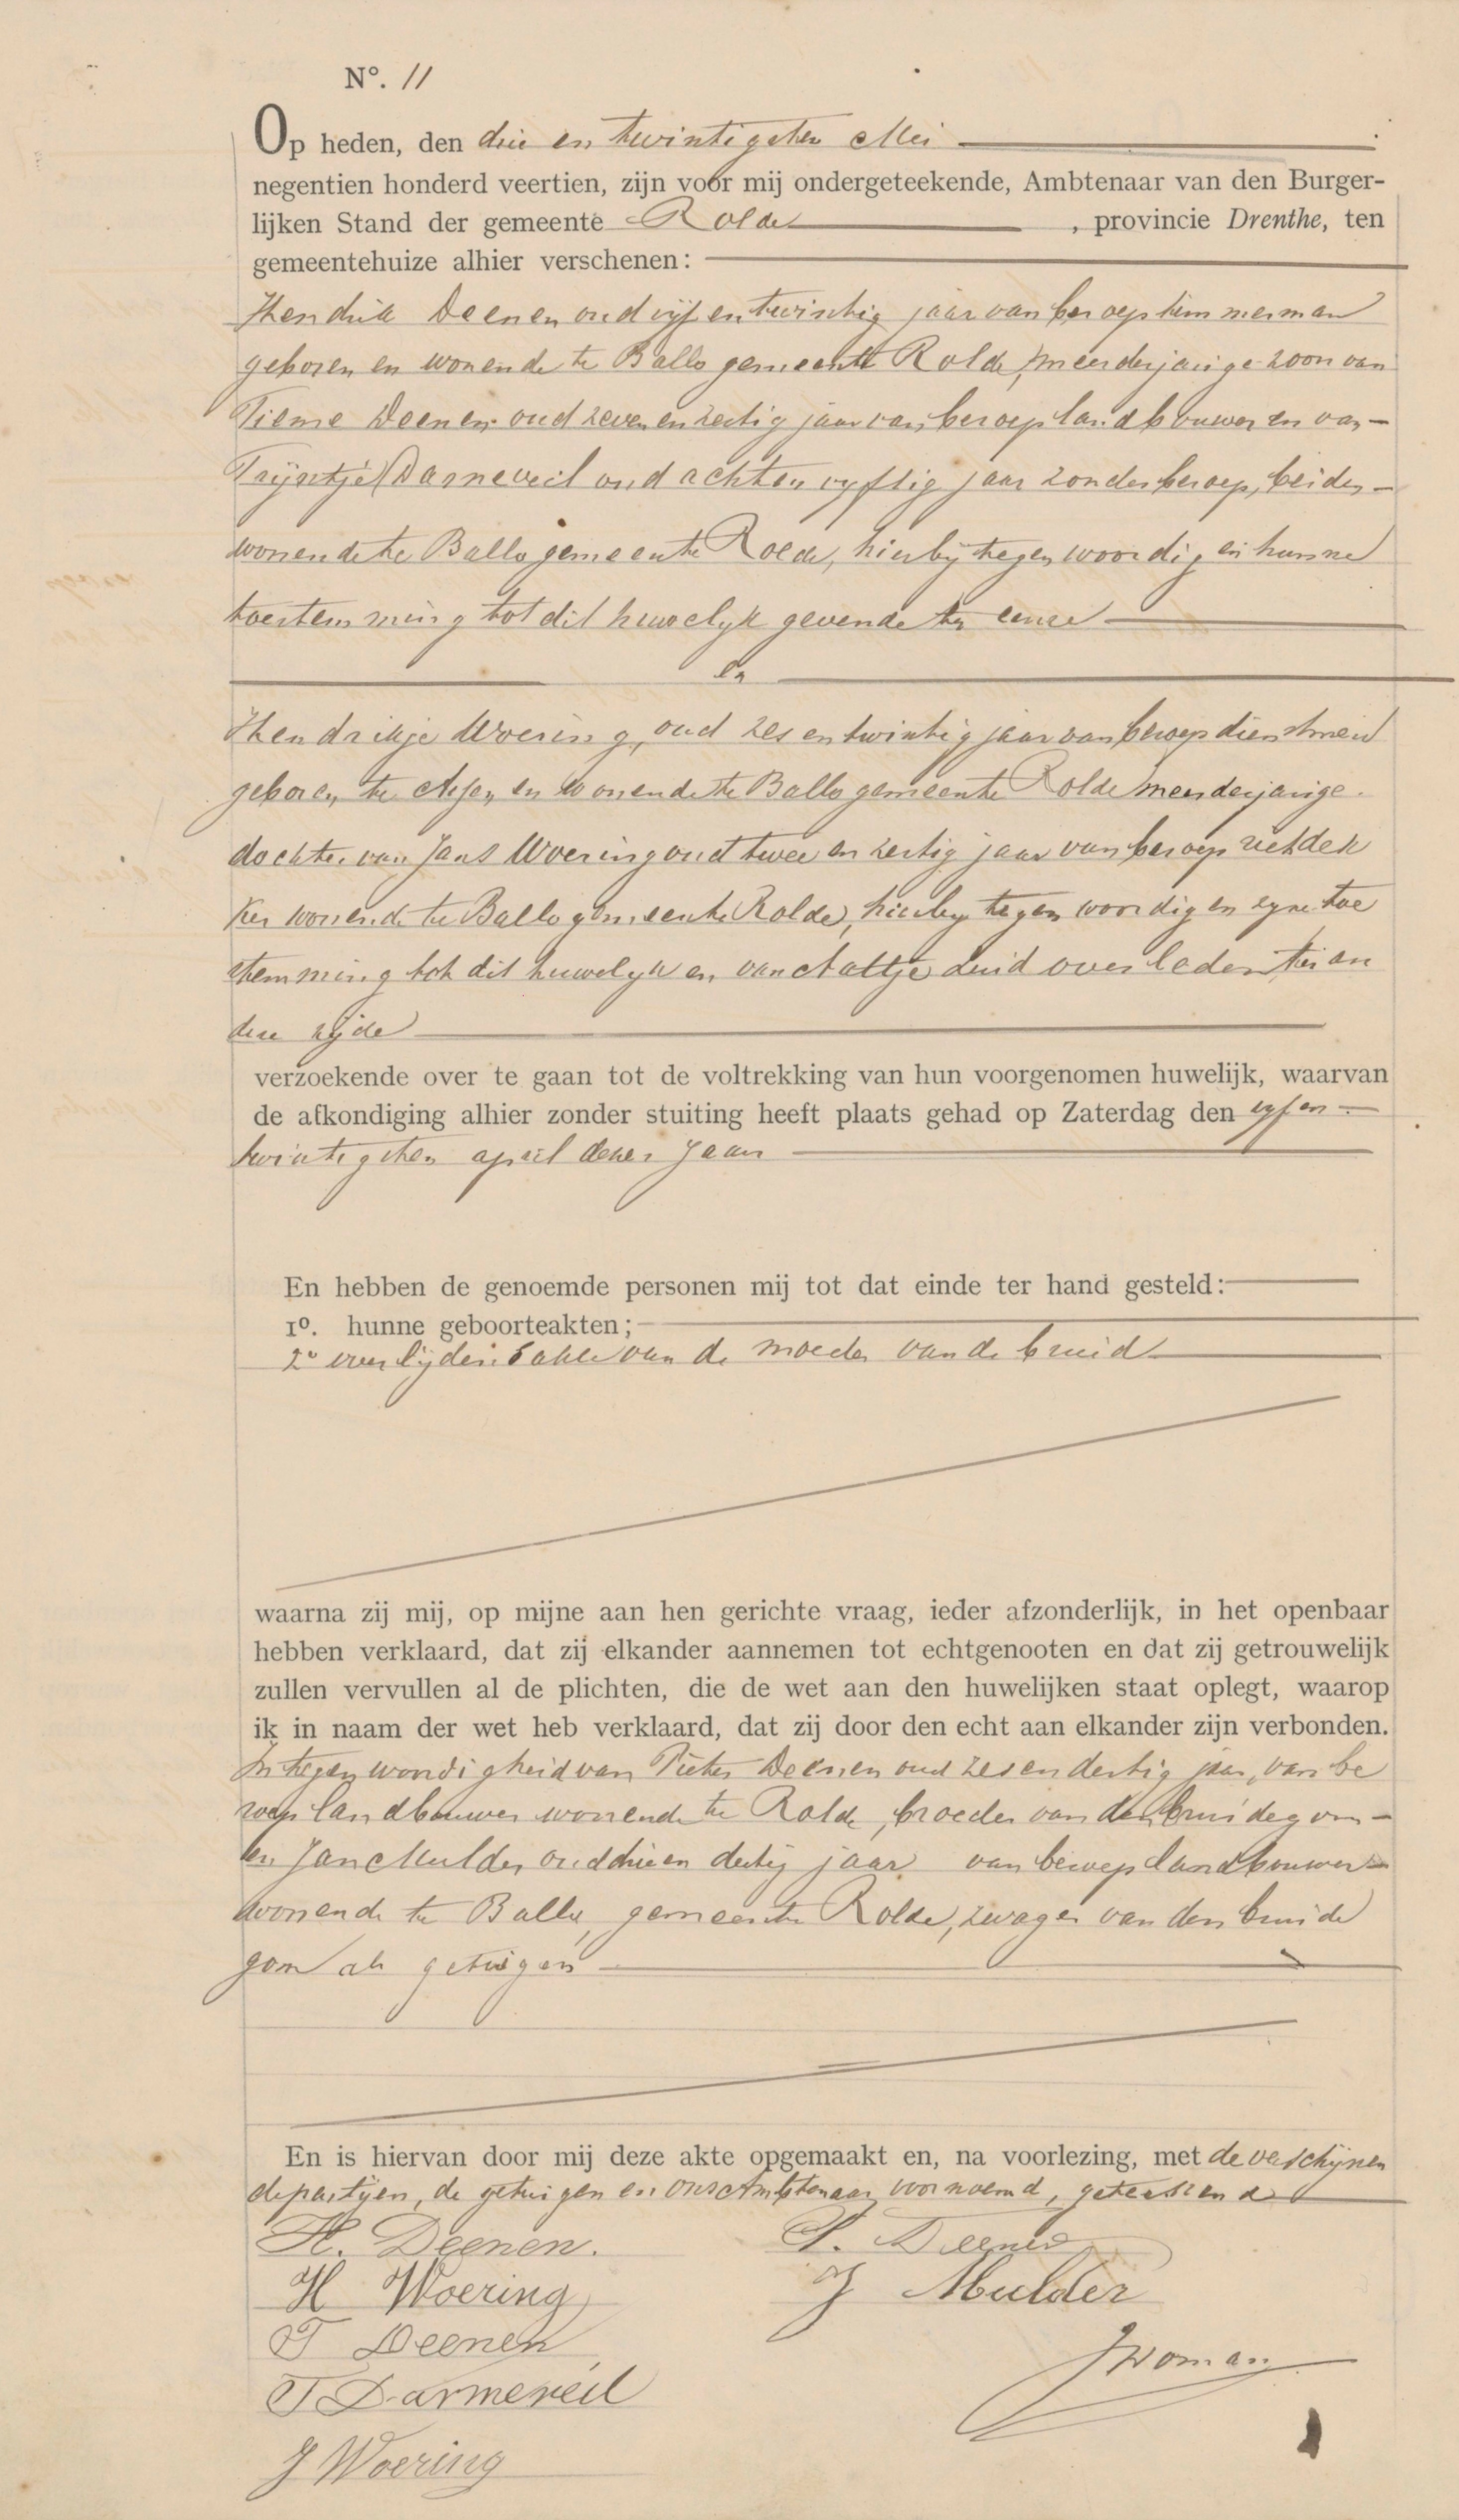 Nº. 11
Op heden, den drie en twintigsten Mei
negentien honderd veertien, zijn voor mij ondergeteekende, Ambtenaar van den Burger-
lijken Stand der gemeente Rolde , provincie Drenthe, ten
gemeentehuize alhier verschenen:
Hendrik Deenen oud vijf en twintig jaar van beroep timmerman
geboren en wonende te Ballo gemeente Rolde, meerderjarige zoon van
Tieme Deenen oud zeven en zestig jaar van beroep landbouwer en van
Trijntje Darneveil oud acht en vyftig jaar zonder beroep, beiden
wonende te Ballo gemeente Rolde, hierbij tegenwoordig en hunne
toestemming tot dit huwelyk gevende ter eenre
En
Hendrikje Woering, oud zes en twintig jaar van beroep dienstmeid
geboren te Assen en wonende te Ballo gemeente Rolde meerderjarige
dochter van Jans Woering oud twee en zestig jaar van beroep rietdek
ker wonende te Ballo gemeente Rolde, hierby tegenwoordig en zyne toe
stemming tot dit huwelyk en van Aaltje Luid overleden ter an
dere zijde
verzoekende over te gaan tot de voltrekking van hun voorgenomen huwelijk, waarvan
de afkondiging alhier zonder stuiting heeft plaats gehad op Zaterdag den vyf en
twintigsten april dezes jaars
En hebben de genoemde personen mij tot dat einde ter hand gesteld:
1º. hunne geboorteakten;
2º overlijdensakte van de moeder van de bruid
waarna zij mij, op mijne aan hen gerichte vraag, ieder afzonderlijk, in het openbaar
hebben verklaard, dat zij elkander aannemen tot echtgenooten en dat zij getrouwelijk
zullen vervullen al de plichten, die de wet aan den huwelijken staat oplegt, waarop
ik in naam der wet heb verklaard, dat zij door den echt aan elkander zijn verbonden.
In tegenwoordigheid van Pieter Deenen oud zes en dertig jaar, van be
roep landbouwer wonende te Rolde, broeder van den bruidegom
en Jan Mulder oud drie en dertig jaar van beroep landbouwer
wonende te Ballo, gemeente Rolde, zwager van den bruide
gom als getuigen
En is hiervan door mij deze akte opgemaakt en, na voorlezing, met de verschijnen
de partijen, de getuigen en ons Ambtenaar voornoemd, geteekend
H. Deenen. P. Deenen
H Woering J Mulder
T Deenen
J Homan
T Darmeveil
J Woering